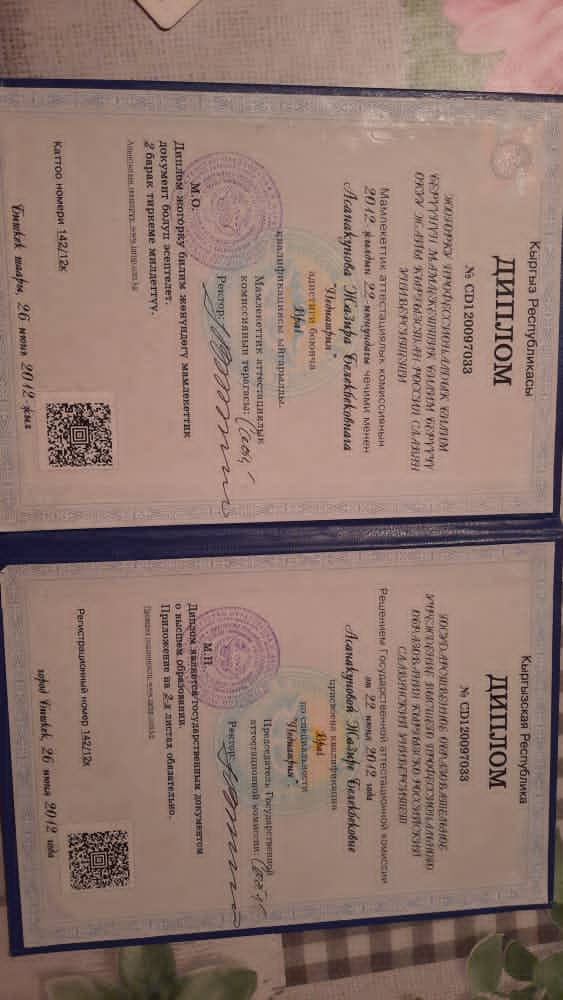 Кыргыз Республикасы
ДИПЛОМ
№ CD120097033
ЖОГОРКУ ПРОФЕССИОНАЛДЫК БИЛИМ
БЕРҮҮНҮН МАМЛЕКЕТТИК БИЛИМ БЕРҮҮЧҮ
ОКУУ ЖАЙЫ КЫРГЫЗСТАН РОССИЯ СЛАВЯН
УНИВЕРСИТЕТИ
Мамлекеттик аттестациялык комиссиянын
2012 жылдын 22 июнундагы чечими менен
Асанакунова Жазира Белекбековнага
"Педиатрия"
адистиги боюнча
Врач
квалификациясы ыйгарылды.
Мамлекеттик аттестациялык
комиссиянын төрагасы:
Ректор:
М.О.
Диплом жогорку билим жөнүндөгү мамлекеттик
документ болуп эсептелет.
2 барак тиркеме милдеттүү.
Каттоо номери 142/12к
Бишкек шаары 26 июня 2012 жыл
Кыргызская Республика
ДИПЛОМ
№ CD120097033
ГОСУДАРСТВЕННОЕ ОБРАЗОВАТЕЛЬНОЕ
УЧРЕЖДЕНИЕ ВЫСШЕГО ПРОФЕССИОНАЛЬНОГО
ОБРАЗОВАНИЯ КЫРГЫЗСКО РОССИЙСКИЙ
СЛАВЯНСКИЙ УНИВЕРСИТЕТ
Решением Государственной аттестационной комиссии
от 22 июня 2012 года
Асанакуновой Жазире Белекбековне
присвоена квалификация
Врач
по специальности
"Педиатрия".
Председатель Государственной
аттестационной комиссии:
Ректор:
М.П.
Диплом является государственным документом
о высшем образовании.
Приложение на 2-х листах обязательно.
Регистрационный номер 142/12к
город Бишкек, 26 июня 2012 года